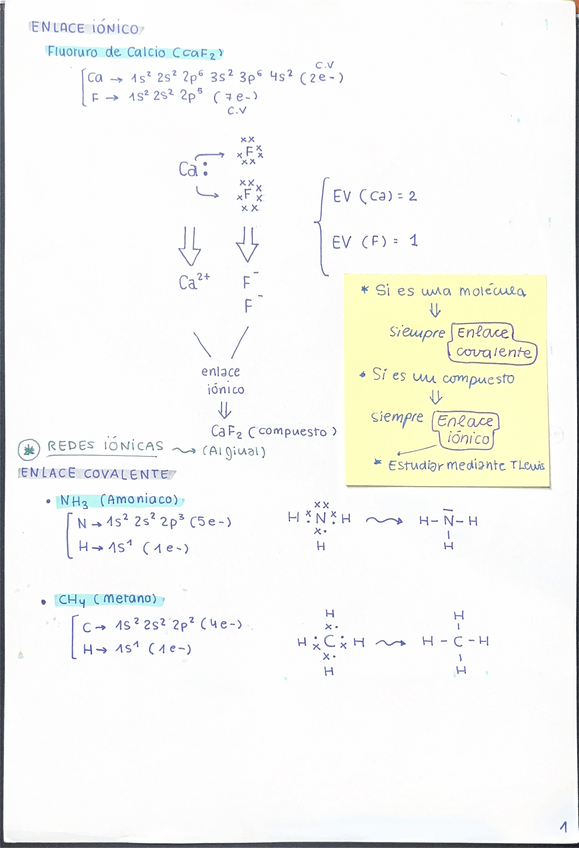 ENLACE IÓNICO
Fluoruro de Calcio (CaF₂)
C.V
Ca → 1s² 2s² 2p⁶ 3s² 3p⁶ 4s² (2e-)
F → 1s² 2s² 2p⁵ (7e-)
C.V
Ca :
xx
x F x
x x
xx
xx
x F x
x
xx
EV (Ca) = 2
EV (F) = 1
Ca²⁺ F⁻
F⁻
enlace
iónico
CaF₂ (compuesto)
* Si es una molécula
siempre Enlace
covalente
* Si es un compuesto
siempre Enlace
iónico
* Estudiar mediante T Lewis
* REDES IÓNICAS (Al gual)
ENLACE COVALENTE
• NH₃ (Amoniaco)
N → 1s² 2s² 2p³ (5e-)
H → 1s¹ (1e-)
xx
H N H
x•
H
H - N - H
H
• CH₄ (Metano)
C → 1s² 2s² 2p² (4e-)
H → 1s¹ (1e-)
H
x•
H C H
x•
H
H
H - C - H
H
1